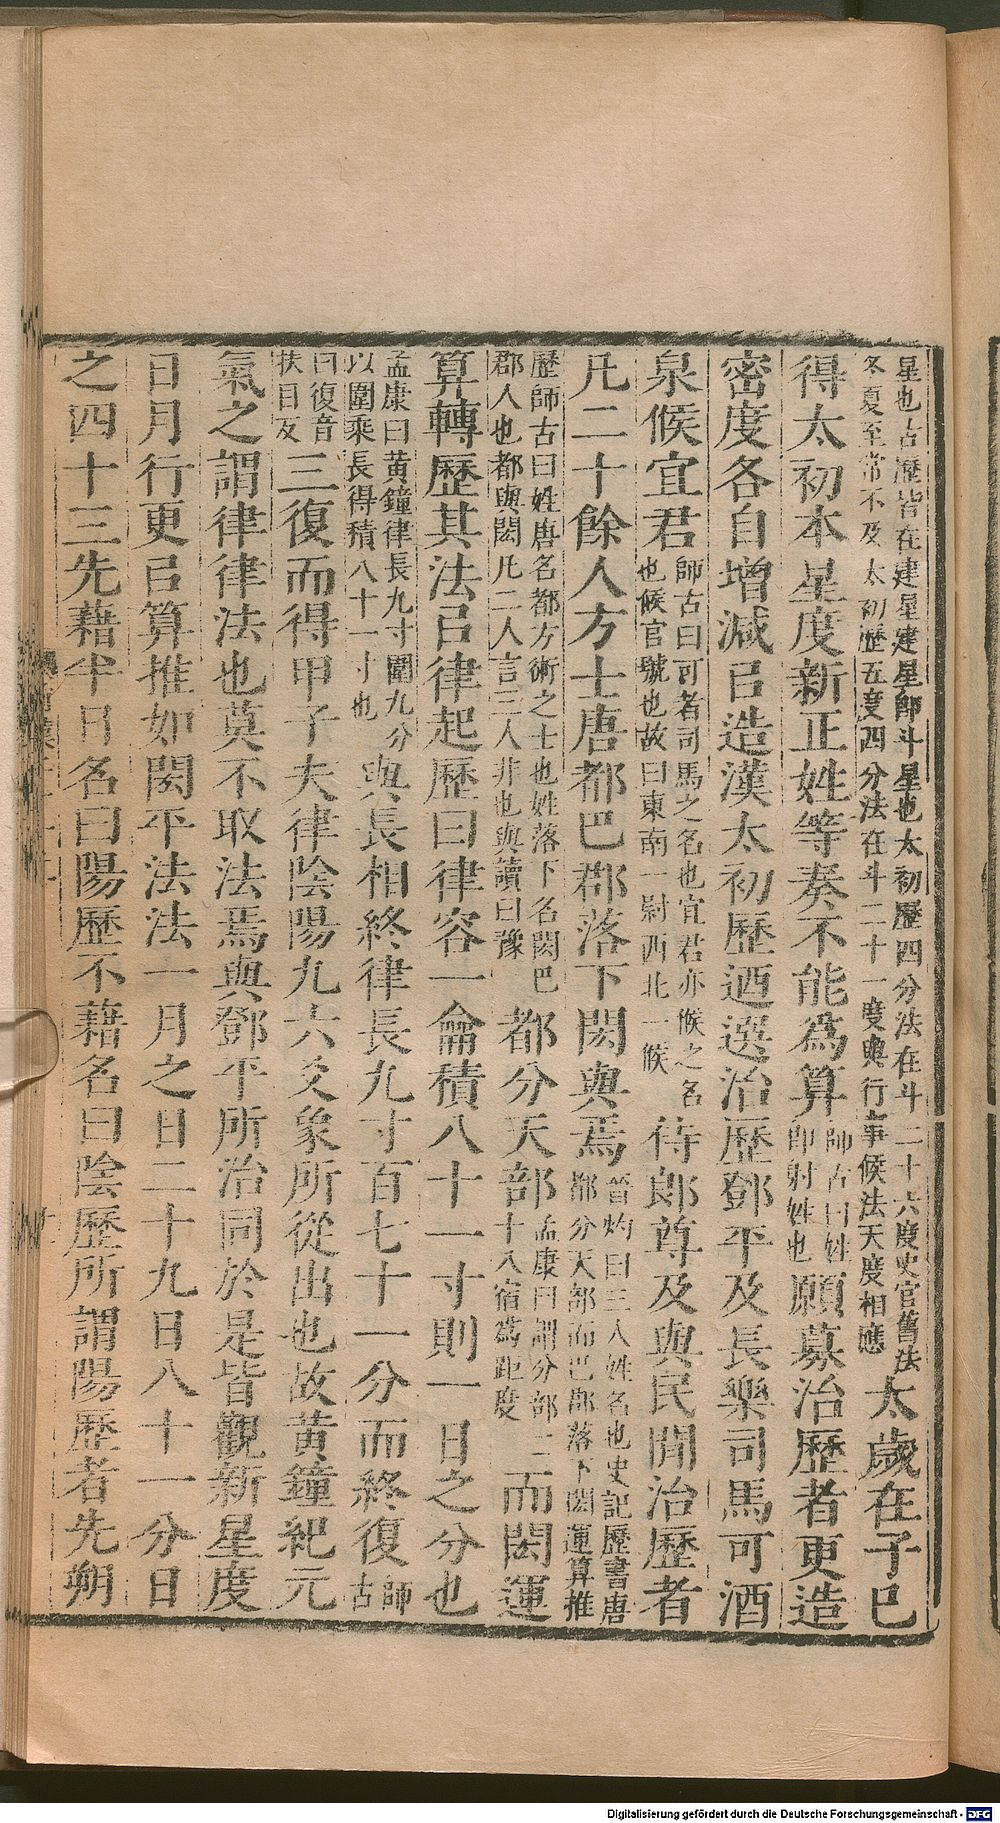 星也古歷皆在建星建星即斗星也太初歷四分法在斗二十六度史官舊法
冬夏至常不及太初歷五度四分法在斗二十一度與行事候法天度相應
太歲在子已
得太初本星度新正姓等奏不能爲算
師古曰姓
即射姓也
願募治歷者更造
密度各自增減㠯造漢太初歷迺選治歷鄧平及長樂司馬可酒
泉候宜君
師古曰可者司馬之名也宜君亦候之名
也候官號也故曰東南一尉西北一候
待郎尊及與民間治歷者
凡二十餘人方士唐都巴郡落下閎與焉
晉灼曰三人姓名也史記歷書唐
都分天部而巴郡落下閎運算推
歷師古曰姓唐名都方術之士也姓落下名閎巴
郡人也都與閎凡二人言三人非也與讀曰豫
都分天部
孟康曰謂分部二
十八宿爲距度
而閎運
算轉歷其法㠯律起歷曰律容一龠積八十一寸則一日之分也
孟康曰黃鐘律長九寸圍九分
以圍乘長得積八十一寸也
與長相終律長九寸百七十一分而終復
師
古
曰復音
扶目反
三復而得甲子夫律陰陽九六爻象所從出也故黃鐘紀元
氣之謂律律法也莫不取法焉與鄧平所治同於是皆觀新星度
日月行更㠯算推如閎平法法一月之日二十九日八十一分日
之四十三先藉半日名曰陽歷不藉名曰陰歷所謂陽歷者先朔
Digitalisierung gefördert durch die Deutsche Forschungsgemeinschaft - DFG